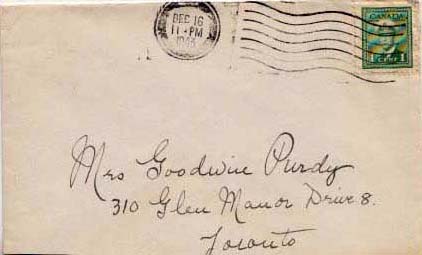 DEC 16
11 - PM
CANADA
1 CENT 1
Mrs Goodwin Purdy
310 Glen Manor Drive 8.
Toronto